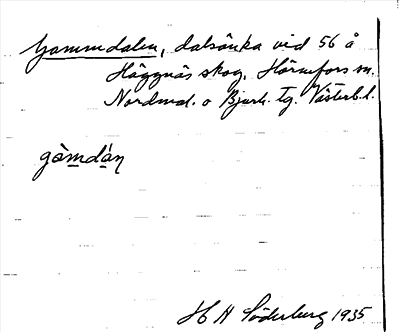 Gammdalen, dalsänka vid 56 å
Häggnäs skog, Hörnefors sn.
Nordmal. o Bjurh. tg. Västerb. l.
gàmdáŋ
H H Söderberg 1935